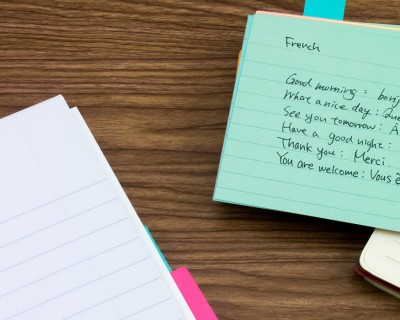 French
Good morning : bonj
What a nice day : Que
See you tomorrow : À
Have a good night :
Thank you : Merci
You are welcome : Vous ê